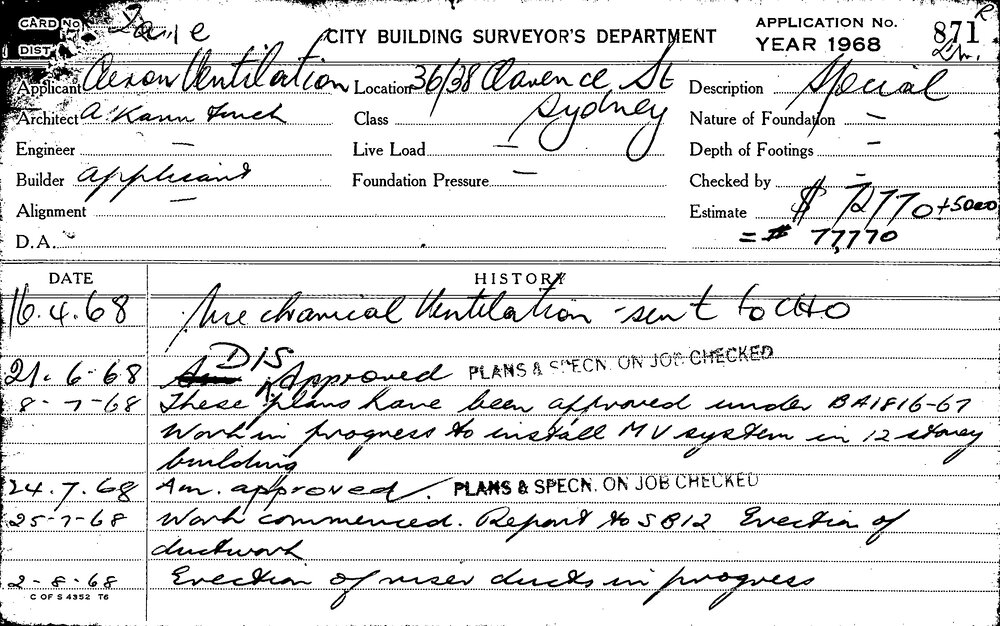 CARD No.
DIST
CITY BUILDING SURVEYOR'S DEPARTMENT
APPLICATION No. 871 R
YEAR 1968
Applicant Aeron Ventilation Location 36/38 Clarence St Description Special
Sydney
Architect A. Kann Finch Class Nature of Foundation —
Engineer — Live Load — Depth of Footings —
Builder applicant Foundation Pressure — Checked by —
Alignment — Estimate $ 72770 + 5000
D.A. = $ 77,770
DATE HISTORY
16.4.68 Mechanical Ventilation - sent to CHO
21.6.68 DIS Approved PLANS & SPECN. ON JOB CHECKED
8-7-68 These plans have been approved under BA1816-67
Work in progress to install MV system in 12 storey
building
24.7.68 Am. approved. PLANS & SPECN. ON JOB CHECKED
25-7-68 Work commenced. Report to SB12 Erection of
ductwork
2-8-68 Erection of riser ducts in progress
C OF S 4352 T6